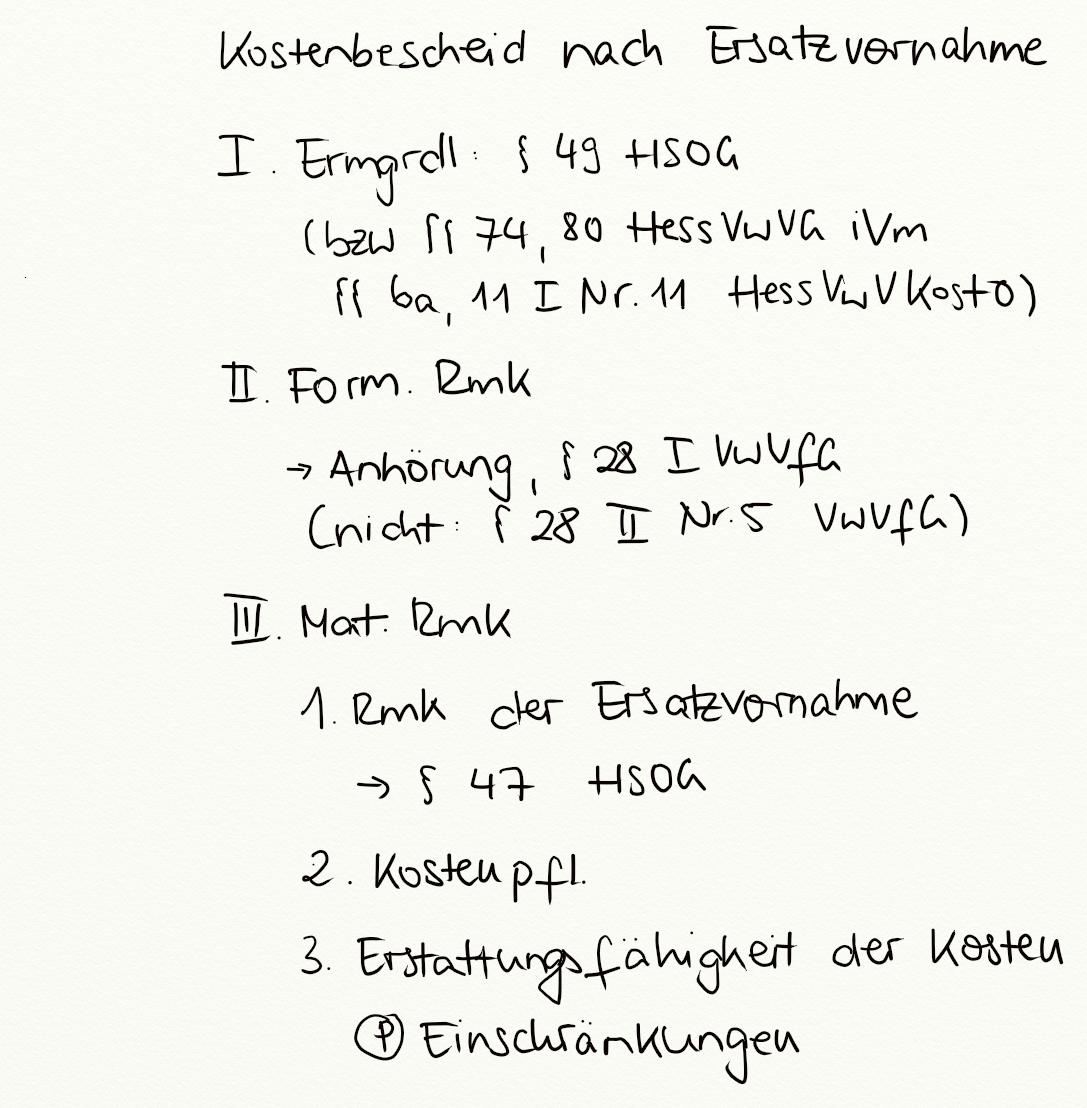 Kostenbescheid nach Ersatzvornahme
I. Ermgrdl: § 49 HSOG
(bzw §§ 74, 80 HessVwVG iVm
§§ 6a, 11 I Nr. 11 HessVwVKostO)
II. Form. Rmk
→ Anhörung, § 28 I VwVfG
(nicht: § 28 II Nr. 5 VwVfG)
III. Mat. Rmk
1. Rmk der Ersatzvornahme
→ § 47 HSOG
2. Kostenpfl.
3. Erstattungsfähigkeit der Kosten
Ⓟ Einschränkungen